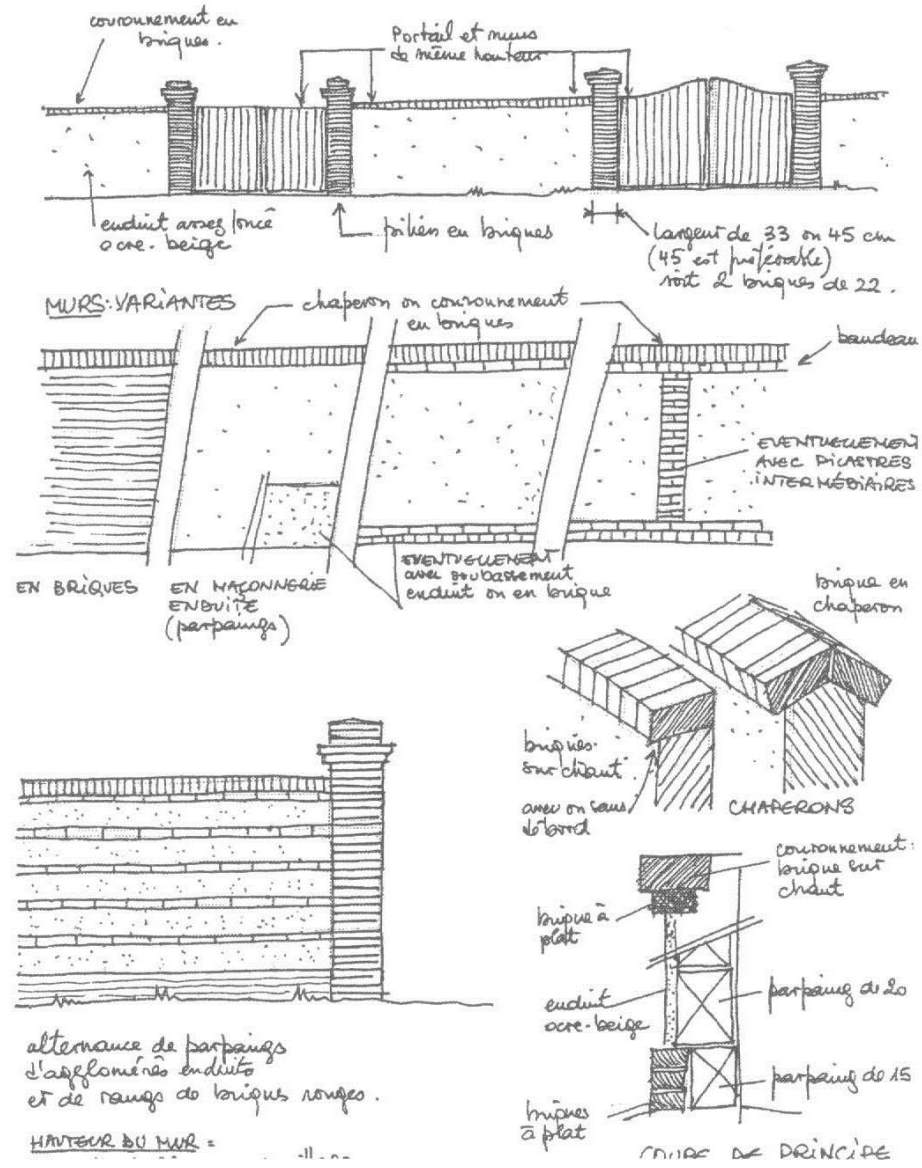 couronnement en
briques.
Portail et murs
de même hauteur
enduit assez foncé
ocre-beige
piliers en briques
largeur de 33 ou 45 cm
(45 est préférable)
soit 2 briques de 22.
MURS: VARIANTES
chaperon ou couronnement
en briques
bandeau
EVENTUELLEMENT
AVEC PILASTRES
INTERMÉDIAIRES
EN BRIQUES
EN MAÇONNERIE
ENDUITE
(parpaings)
EVENTUELLEMENT
avec soubassement
enduit ou en brique
brique en
chaperon
briques
sur chant
avec ou sans
débord
CHAPERONS
couronnement:
brique sur
chaut
brique à
plat
enduit
ocre-beige
parpaing de 20
parpaing de 15
briques
à plat
COUPE DE PRINCIPE
alternance de parpaings
d'agglomérés enduits
et de rangs de briques rouges.
HAUTEUR DU MUR =